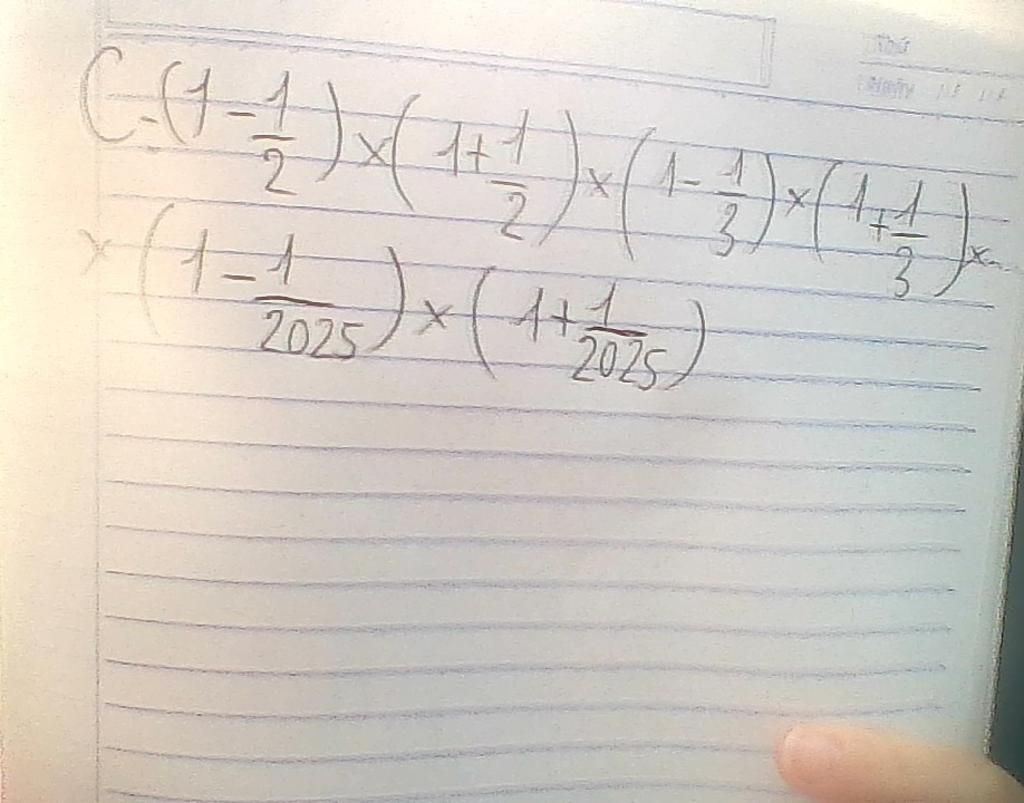 Thứ
Ngày / /
C = (1 - 1/2) × (1 + 1/2) × (1 - 1/3) × (1 + 1/3) × ...
× (1 - 1/2025) × (1 + 1/2025)